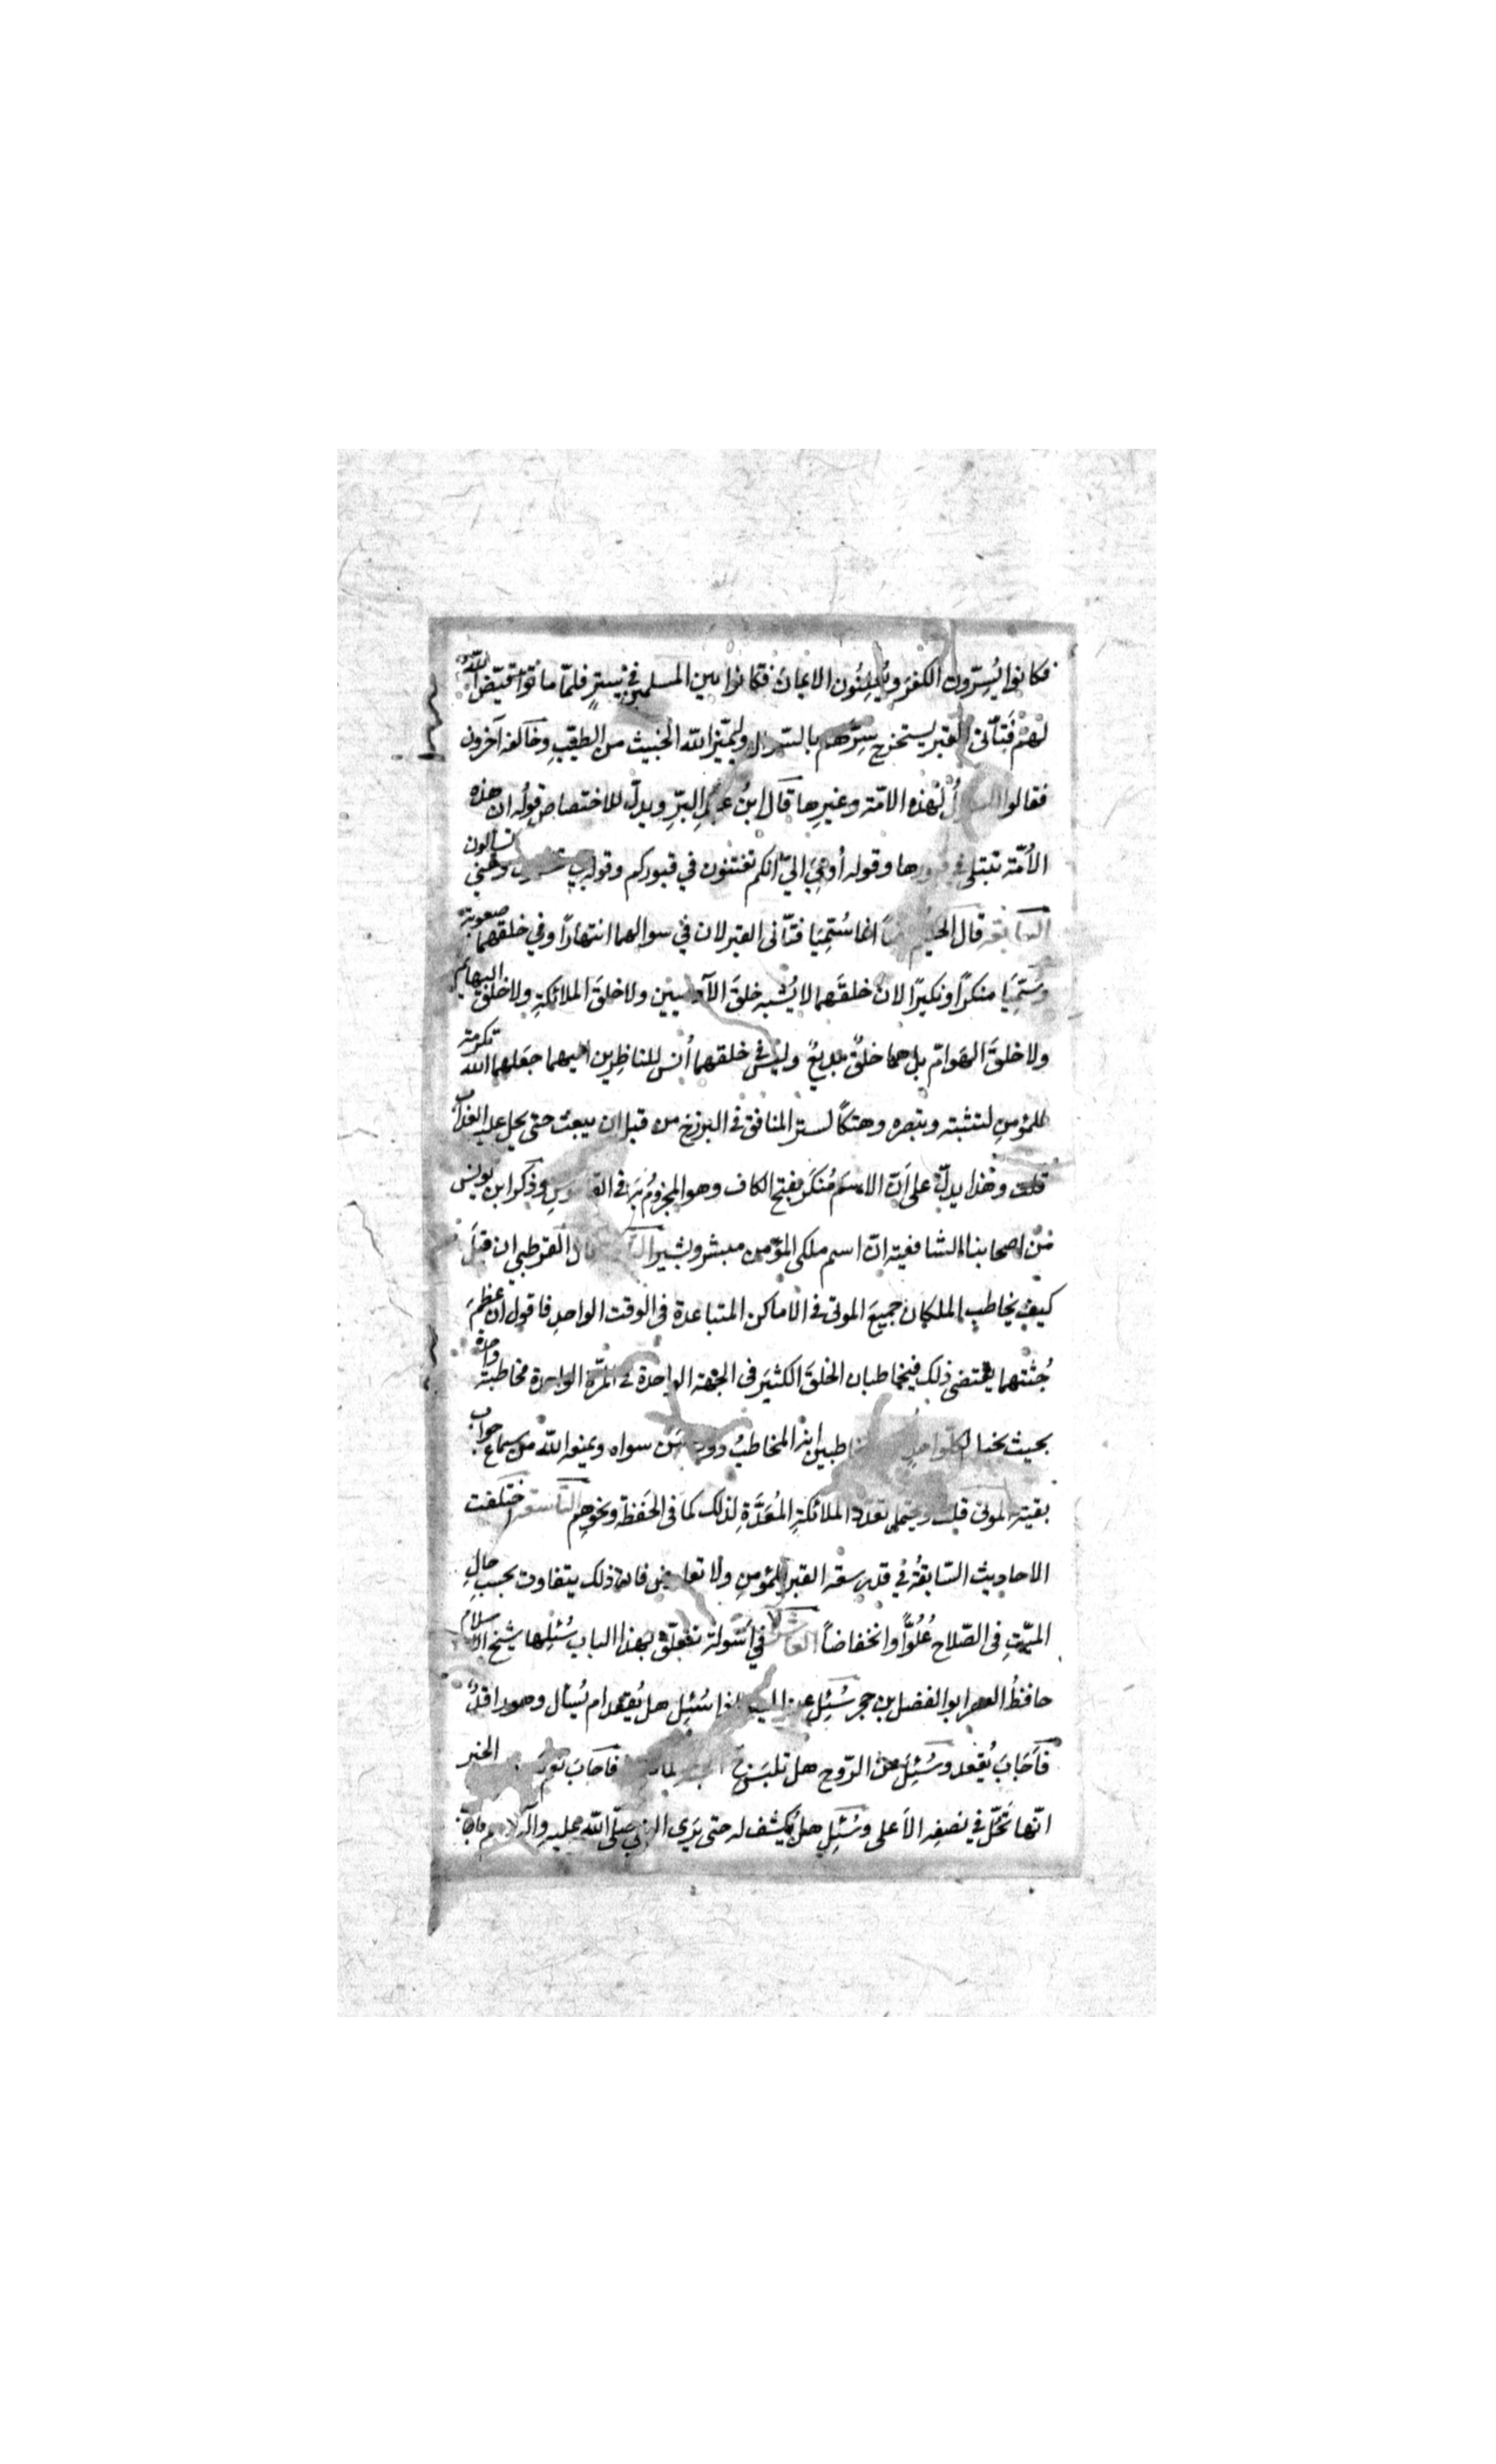 فكانوا يُسِرّون الكفرَ ويُعلِنُون الايمانَ فكانوا بين المسلمين في سِترٍ فلمّا ماتوا قيّض اللّهُ
لهم فَتّانَى القبر ليستخرج سِرّهم بالسوال وليميّز اللّه الخبيث من الطيّبِ وخالفه آخرون
فقالوا السوالُ لهذه الامّة وغيرها قال ابنُ عبدِ البرِّ ويدلّ للاختصاص قولُه ان هذه
الأمّة تبتلى في قبورها وقوله أوحِيَ اليّ انكم تفتنون في قبوركم وقوله بي تفتنون وعني تسالون
السابعة قال الحكيم انما سُمّيَا فتّانى القبر لان في سوالهما انتهارًا وفي خلقهما صعوبة
وسُمّيَا منكرًا ونكيرًا لان خلقَهما لا يُشبه خلقَ الآدميين ولا خلقَ الملائكةِ ولا خلقَ البهائم
ولا خلقَ الهَوامّ بل هما خلقٌ بديعٌ وليس في خلقهما أُنس للناظِرين اليهما جعَلهما اللّه تكرمة
للمؤمنِ لتثبته وتبصره وهتكًا لستر المنافق في البرزخ من قبل ان يبعث حتى يحل عليه العذاب
قلت وهذا يدلّ على اَنّ الاسمَ مُنكَر بفتح الكاف وهو المجزومُ به في القاموسِ وذكر ابن يونس
من اصحابنا الشافعية انّ اسم ملكي المؤمن مبشر وبشير قال القرطبي ان قيلَ
كيف يخاطب الملكان جميعَ الموتى في الاماكن المتباعدة في الوقت الواحدِ فاقول ان عِظَمَ
جُثّتهما يقتضى ذلك فيخاطبان الخلقَ الكثيَر في الجهة الواحدة في المرّة الواحدة مخاطبة واحدة
بحيث يخيل لكلّ واحدٍ من المخاطبين انه المخاطبُ دون مَن سواه ويمنعه اللّه من سماع جواب
بقية الموتى قلت ويحتمل تعدد الملائكةِ المُعَدَّةِ لذلك كما في الحَفَظة ونحوهِم التاسعة اختلفت
الاحاديث السّابقةُ في قدر سعة القبر للمؤمنِ ولا تعارض فان ذلك يتفاوت بحسبِ حالِ
الميّتِ في الصّلاح عُلُوًّا وانخفاضاً العاشرة في أسَولة تتعلّق بهذا الباب سُئِلها شيخ الاسلام
حافظُ العصر ابو الفضل بن حجر سُئِل عن الميت اذا سُئِل هل يُقعد ام يُسأل وهو راقدٌ
فاَجَابَ يُقعد وسُئِلَ عن الرّوح هل تلبَس الجثة فاَجَابَ نعم الخبر
انّها تحَلّ في نصفِه الاَعلى وسُئِل هل يُكشف له حتى يَرى النبي صلّى اللّه عليه وآله